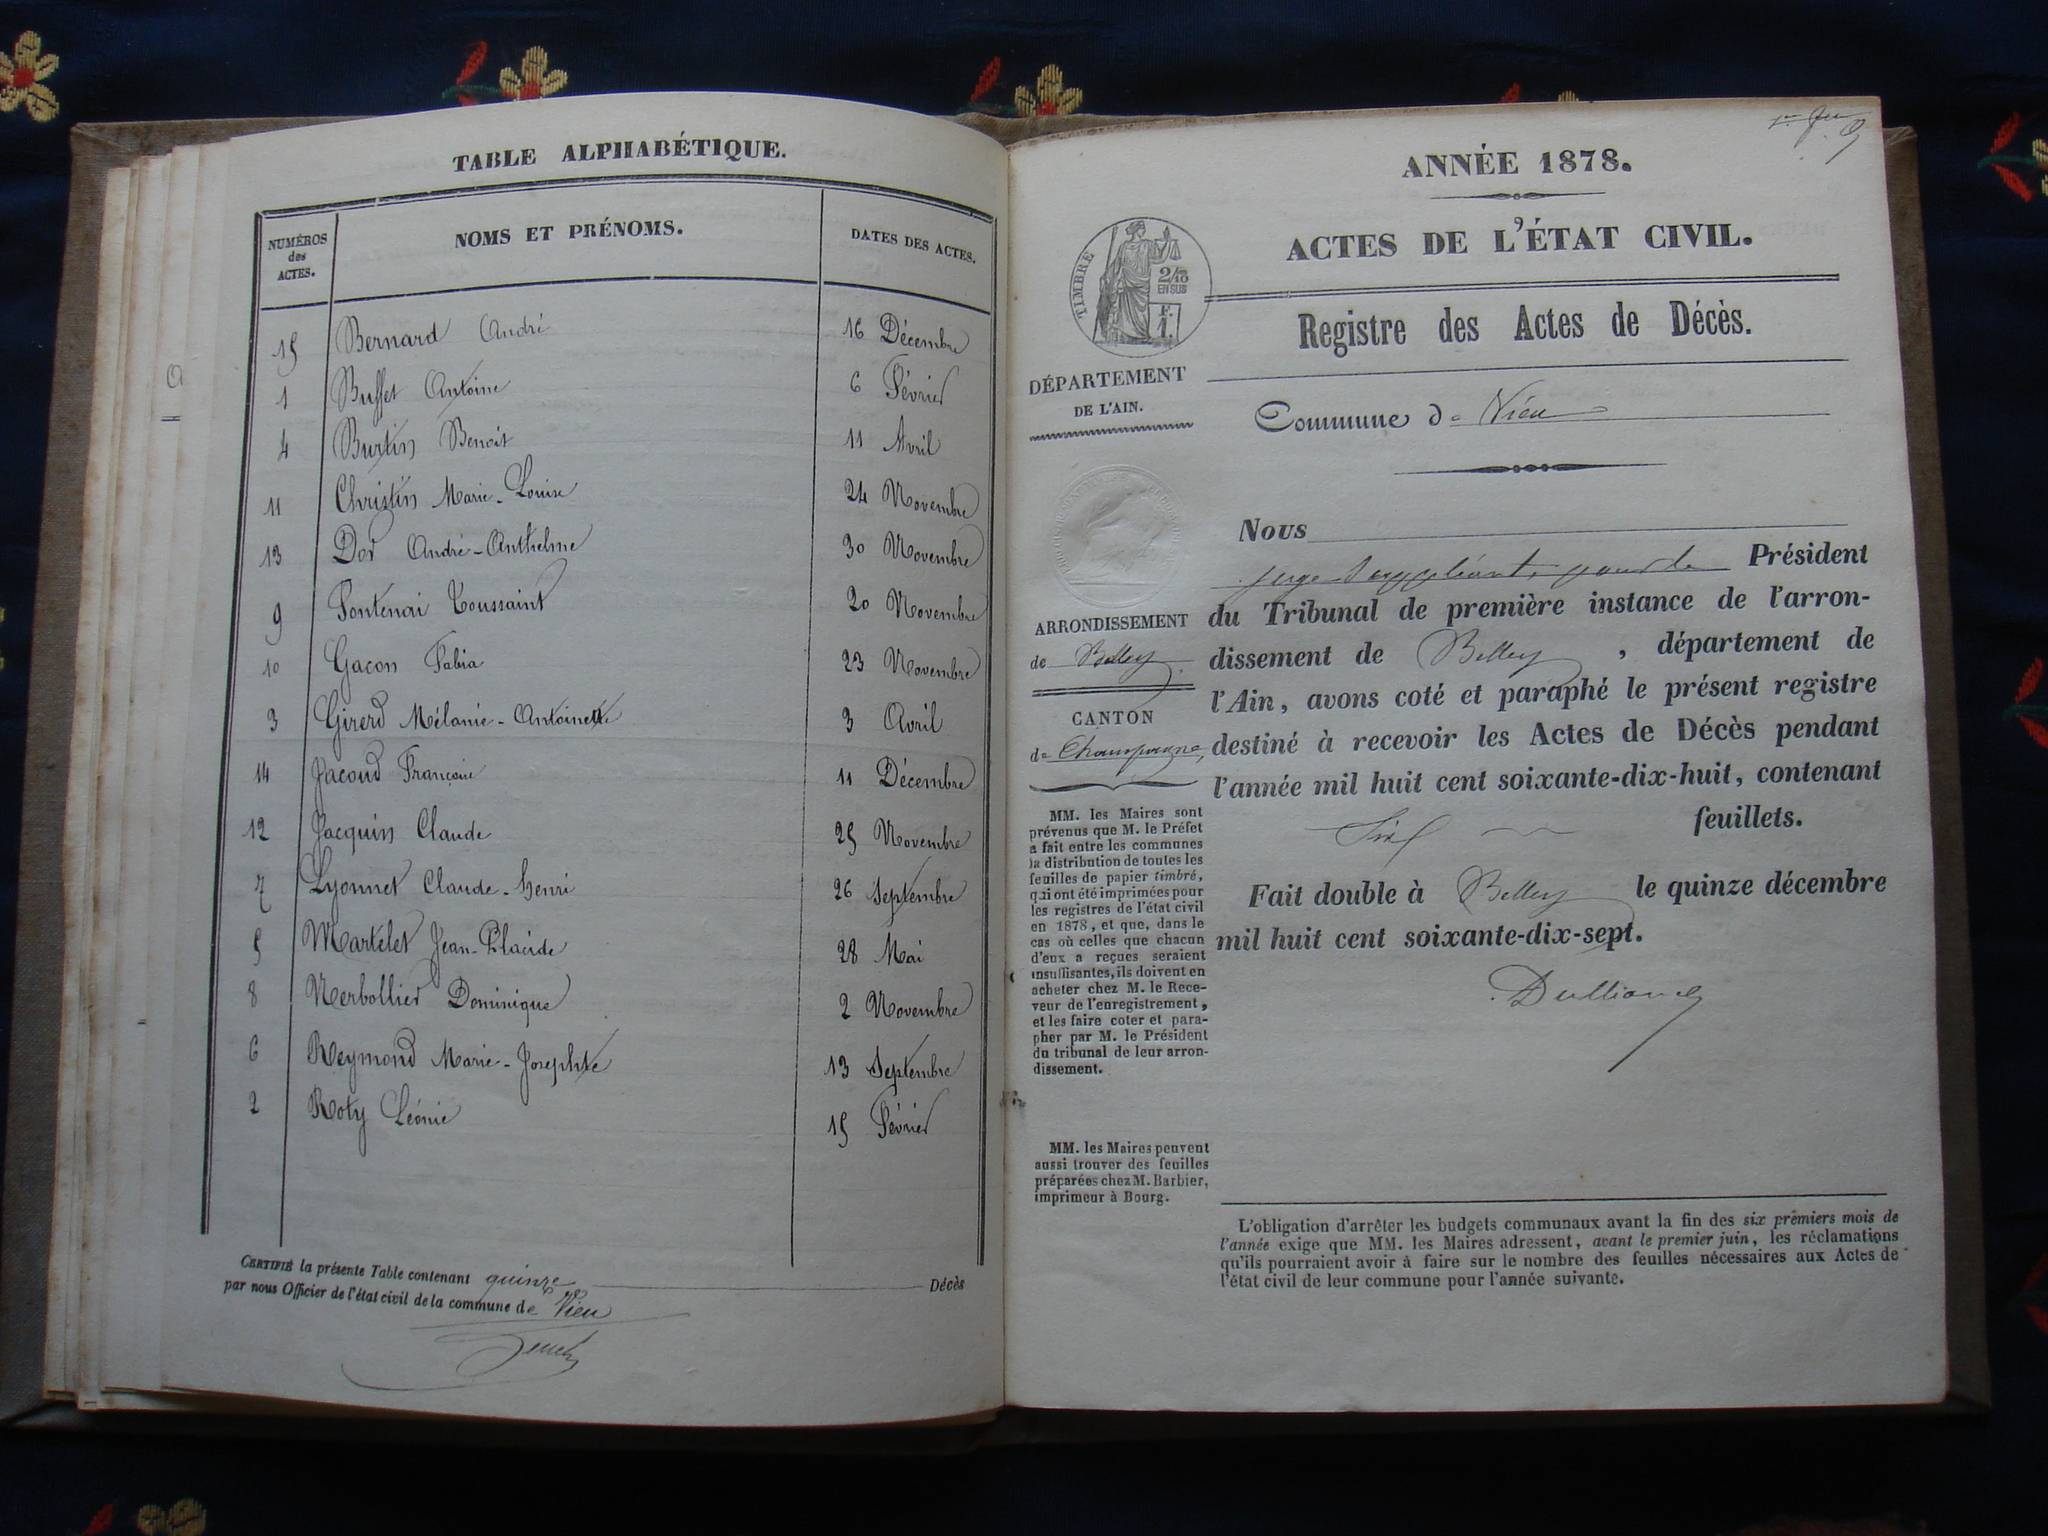 TABLE ALPHABÉTIQUE.
NUMÉROS
des
ACTES.
NOMS ET PRÉNOMS.
DATES DES ACTES.
15 Bernard André 16 Décembre
1 Buffet Antoine 6 Février
4 Burtin Benoit 11 Avril
11 Christin Marie-Louise 24 Novembre
13 Dor André-Anthelme 30 Novembre
9 Fontenai Toussaint 20 Novembre
10 Gacon Fabia 23 Novembre
3 Girerd Mélanie-Antoinette 3 Avril
14 Jacoud Françoise 11 Décembre
12 Jacquin Claude 25 Novembre
7 Lyonnet Claude-henri 26 Septembre
5 Martelet Jean-Placide 28 Mai
8 Nerbollier Dominique 2 Novembre
6 Reymond Marie-Josephte 13 Septembre
2 Roty Léonie 15 Février
CERTIFIÉ la présente Table contenant quinze Décès
par nous Officier de l'état civil de la commune de Vieu
ANNÉE 1878.
ACTES DE L'ÉTAT CIVIL.
TIMBRE
2/10
EN SUS
F.
1.
Registre des Actes de Décès.
DÉPARTEMENT
DE L'AIN.
Commune de Vieu
Nous
juge suppléant, pour le Président
du Tribunal de première instance de l'arron-
dissement de Belley, département de
l'Ain, avons coté et paraphé le présent registre
destiné à recevoir les Actes de Décès pendant
l'année mil huit cent soixante-dix-huit, contenant
Six feuillets.
Fait double à Belley le quinze décembre
mil huit cent soixante-dix-sept.
ARRONDISSEMENT
de Belley
CANTON
de Champagne
MM. les Maires sont
prévenus que M. le Préfet
a fait entre les communes
la distribution de toutes les
feuilles de papier timbré,
qui ont été imprimées pour
les registres de l'état civil
en 1878, et que, dans le
cas où celles que chacun
d'eux a reçues seraient
insuffisantes, ils doivent en
acheter chez M. le Rece-
veur de l'enregistrement,
et les faire coter et para-
pher par M. le Président
du tribunal de leur arron-
dissement.
MM. les Maires peuvent
aussi trouver des feuilles
préparées chez M. Barbier,
imprimeur à Bourg.
L'obligation d'arrêter les budgets communaux avant la fin des six premiers mois de
l'année exige que MM. les Maires adressent, avant le premier juin, les réclamations
qu'ils pourraient avoir à faire sur le nombre des feuilles nécessaires aux Actes de
l'état civil de leur commune pour l'année suivante.